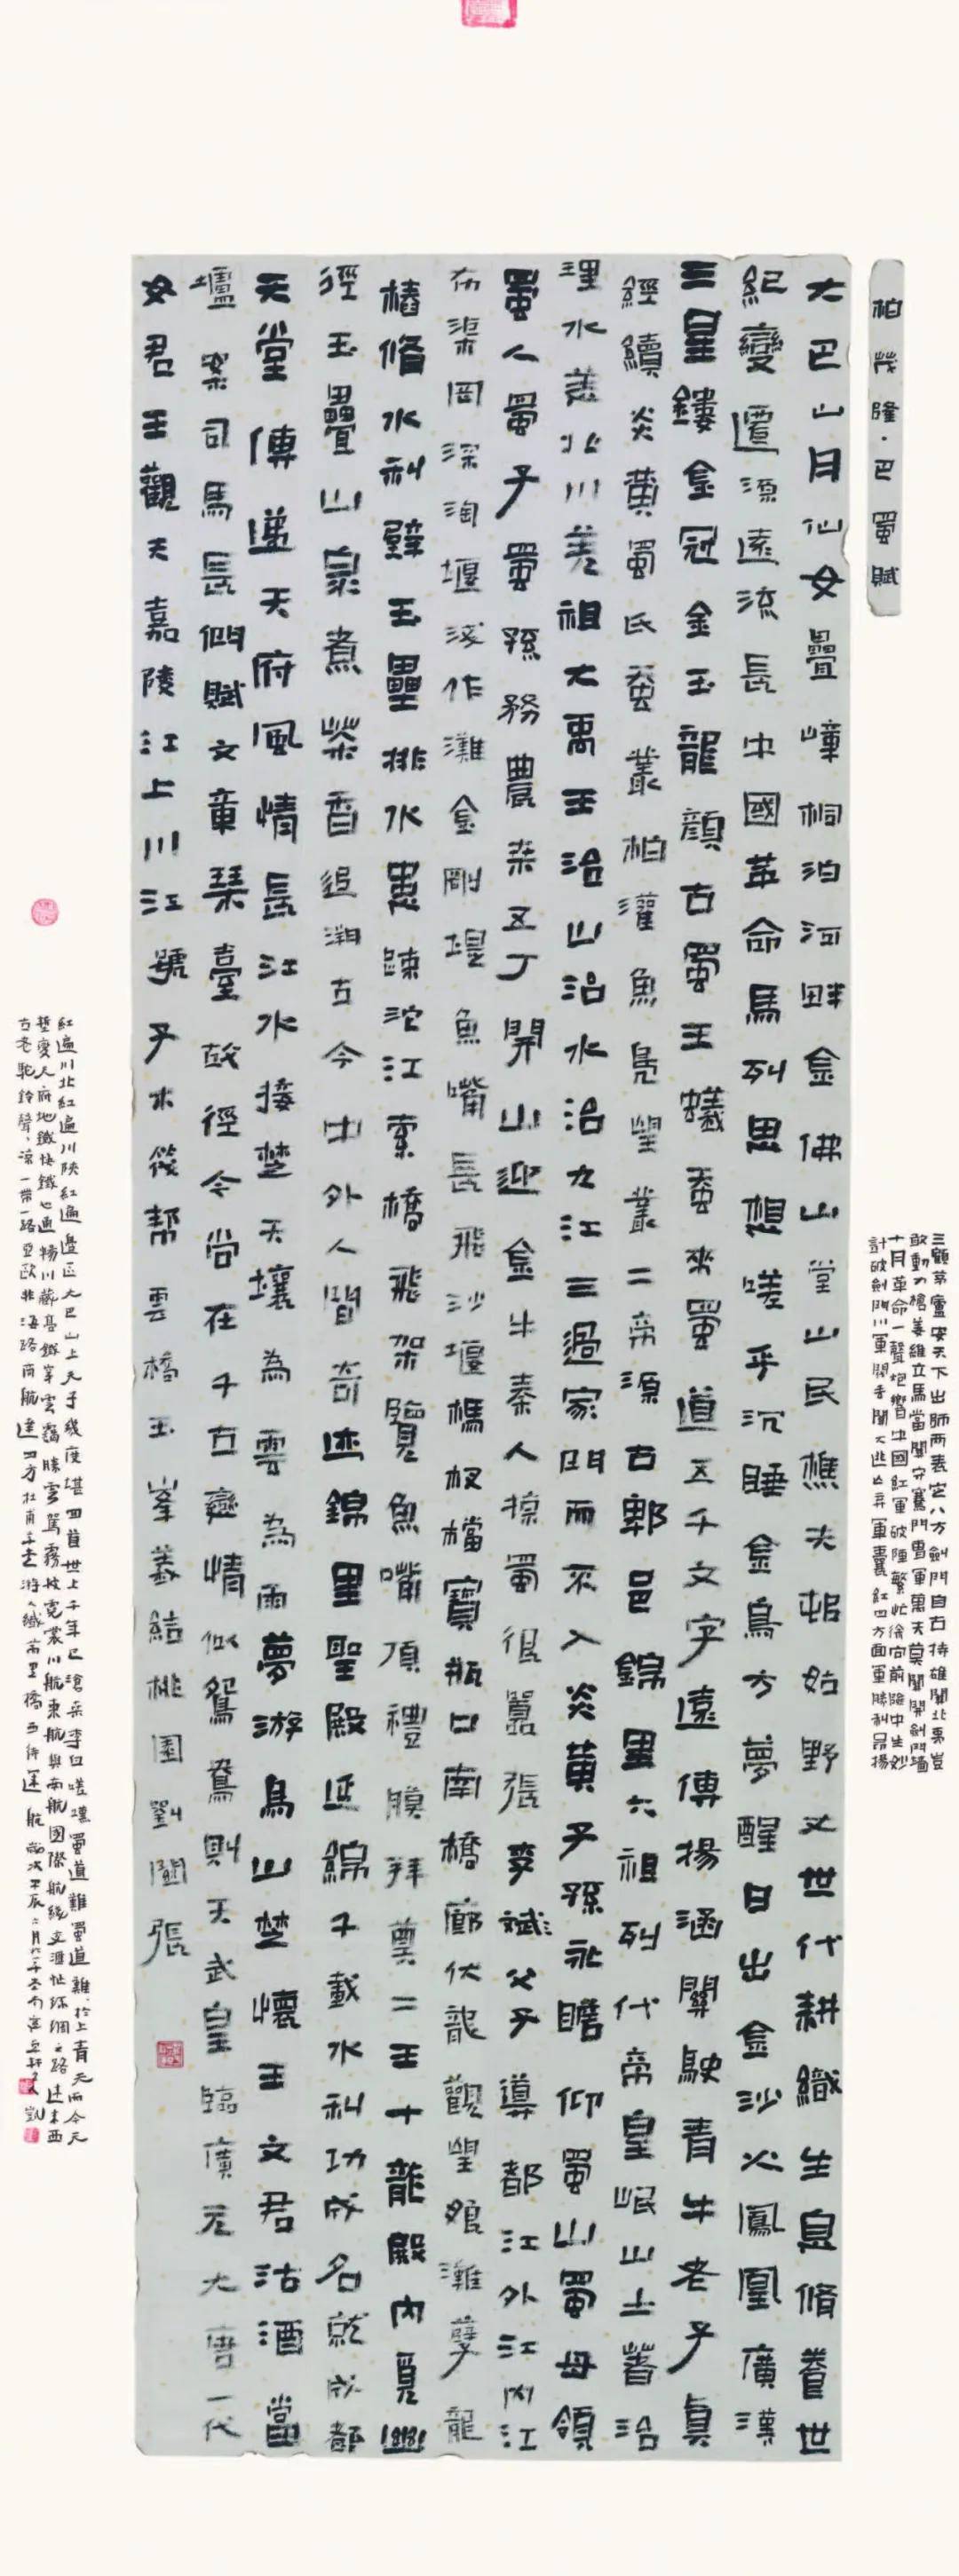 柏茂隆·巴蜀賦
大巴山月仙女疊嶂桐泊河畔金佛山堂山民樵夫邨姑野丈世代耕織生息脩養世
紀變遷源遠流長中國革命馬列思想嗟乎沉睡金烏方夢醒日出金沙火鳳凰廣漢
三星鏤金冠金玉龍顏古蜀王蟻蚕來蜀道五千文字遠傳揚函關駛青牛老子真
經續炎黃蜀氏蚕叢柏灌魚鳧望叢二帝源古郫邑錦里六祖列代帝皇岷山土著治
理水羌北川羌祖大禹王治山治水治九江三過家門而不入炎黃子孫永瞻仰蜀山蜀母領
蜀人蜀子蜀孫務農桒五丁開山迎金牛秦人掠蜀很囂張李斌父子導都江外江內江
布渠罔深淘堰淺作灘金剛堤魚嘴長飛沙堰榪杈檔寶瓶口南橋廊伏龍觀望娘灘孽龍
樁脩水利辟玉壘排水患疎沱江索橋飛架覽魚嘴頂禮膜拜奠二王十龍殿內覓幽
徑玉壘山泉煮茶香追溯古今中外人間奇迹錦里聖殿延綿千載水利功成名就成都
天堂傳遞天府風情長江水接楚天壤為雲為雨夢游烏山楚懷王文君沽酒當
壚案司馬長卿賦文章琴臺故徑今尚在千古癒情似鴛鴦則天武皇臨廣元大唐一代
女君王觀天嘉陵江上川江號子木筏幇雲橋玉峯義結桃園劉關張
三顧茅廬安天下出師兩表定八方劍門自古持雄關北夷豈
敢動刀槍姜維立馬當關守騫門曹軍萬夫莫關開劍門墻
十月革命一聲炮響中國紅軍破陣繁忙徐向前陰中生妙
計破劍門川軍關吾聞大逃亡弃軍囊紅四方面軍勝利昂揚
紅遍川北紅遍川陝紅遍邊區大巴山上天于幾度堪回首世上千年已滄桒李白嗟嘆蜀道難蜀道難於上青天而今天
塹變人府地鐵快鐵七通暢川藏高鐵峯雲靄騰雲駕霧披霓裳川航東航與南航國際航綫交滙忙絲綢之路達東西
古老駝鈴聲涼一帶一路亞歐非海路商航達四方杜甫